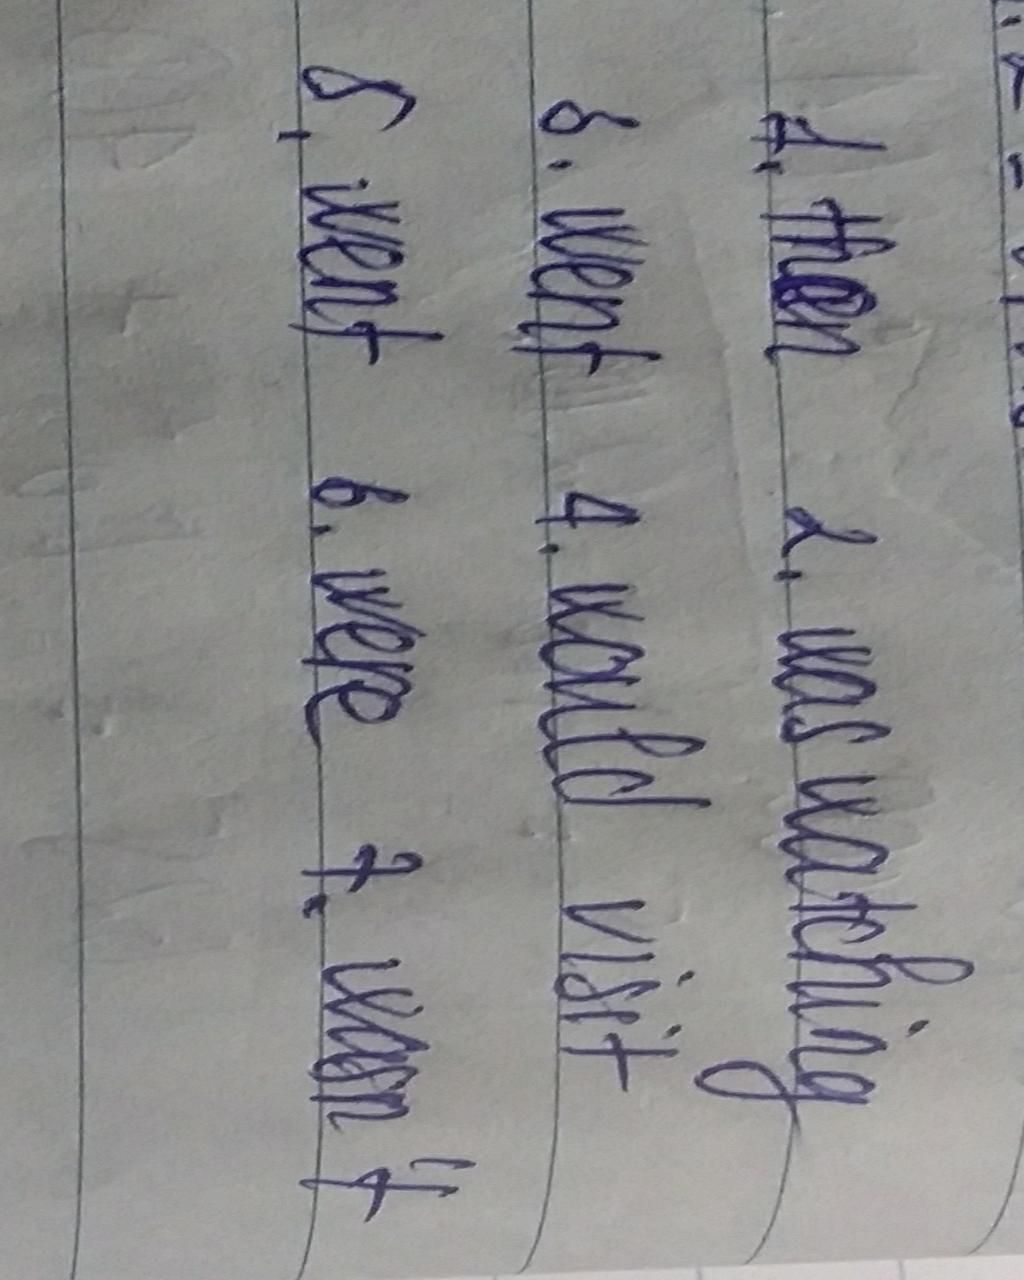 1. then 2. was watching
3. went 4. would visit
5. went 6. were 7. wasn't